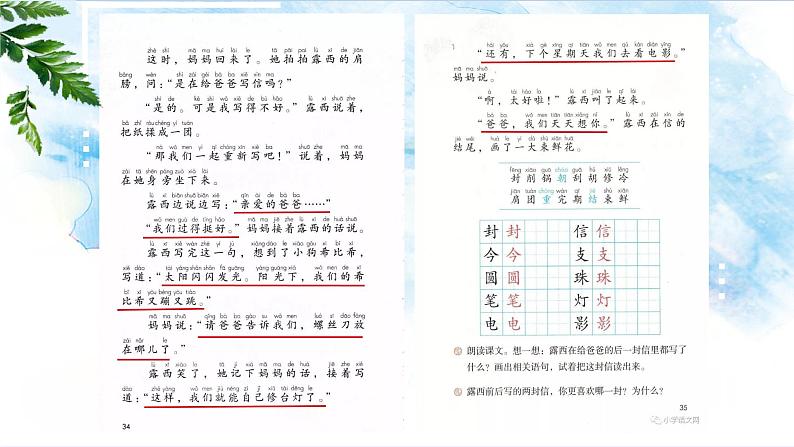 这时，妈妈回来了。她拍拍露西的肩
膀，问：“是在给爸爸写信吗？”
“是的。可是我写得不好。”露西说着，
把纸揉成一团。
“那我们一起重新写吧！”说着，妈妈
在她身旁坐下来。
露西边说边写：“亲爱的爸爸……”
“我们过得挺好。”妈妈接着露西的话说。
露西写完这一句，想到了小狗希比希，
写道：“太阳闪闪发光。阳光下，我们的希
比希又蹦又跳。”
妈妈说：“请爸爸告诉我们，螺丝刀放
在哪儿了。”
露西笑了，她记下妈妈的话，接着写
道：“这样，我们就能自己修台灯了。”
34
“还有，下个星期天我们去看电影。”
妈妈说。
“啊，太好啦！”露西叫了起来。
“爸爸，我们天天想你。”露西在信的
结尾，画了一大束鲜花。
fēng xiāo guō cháo guā hú xiū lěng
封 削 锅 朝 刮 胡 修 冷
jiān tuán chóng wán qī jié shù xiān
肩 团 重 完 期 结 束 鲜
封 封 信 信
今 今 支 支
圆 圆 珠 珠
笔 笔 灯 灯
电 电 影 影
朗读课文。想一想：露西在给爸爸的后一封信里都写了
什么？画出相关语句，试着把这封信读出来。
露西前后写的两封信，你更喜欢哪一封？为什么？
35
小学语文网